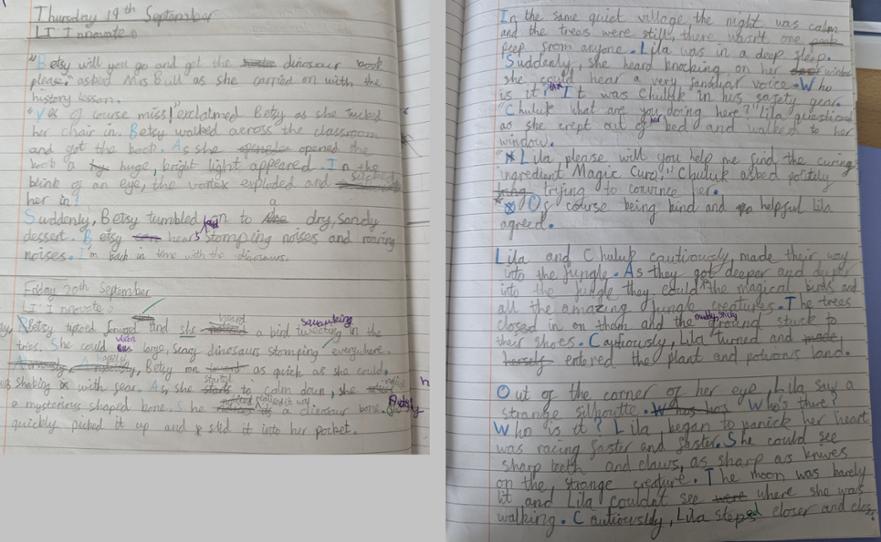 Thursday 19th September
LI: I innovate.
"Betsy will you go and get the dinosaur book
please." asked Mrs Bull as she carried on with the
history lesson.
"Yes of course miss!" exclaimed Betsy as she tucked
her chair in. Betsy walked across the classroom
and got the book. As she opened the
book a huge, bright light appeared. In the
blink of an eye, the vortex exploded and
her in!
Suddenly, Betsy tumbled on to a dry, sandy
dessert. Betsy heard stomping noises and roaring
noises. I'm back in time with the dinosaurs.
Friday 20th September
LI: I innovate
Betsy forward and she heard a bird squawking in the
tries. She could large, scary dinosaurs stomping everywhere.
Betsy as quick as she could.
shaking with fear. As she started to calm down, she
a mysterious shaped bone. She a dinosaur bone.
quickly picked it up and slid it into her pocket.
In the same quiet village the night was calm
and the trees were still, there wasn't one
peep from anyone. Lila was in a deep sleep.
Suddenly, she heard knocking on her window
she could hear a very familiar voice. Who
is it? It was Chuluk in his safety gear.
"Chuluk what are you doing here?" Lila
as she crept out of her bed and walked to her
window.
"Lila please will you help me find the curing
ingredient Magic Curo?" Chuluk asked politely
trying to convince her.
Of course being kind and helpful Lila
agreed.
Lila and Chuluk cautiously, made their way
into the jungle. As they got deeper and
into the jungle they could the magical birds and
all the amazing jungle creatures. The trees
closed in on them and the ground stuck to
their shoes. Cautiously, Lila turned and
entered the plant and potions land.
Out of the corner of her eye, Lila say a
strange silhoutte. "Who's there?
Who is it? Lila began to panick her heart
was racing faster and faster. She could see
sharp teeth and claws, as sharp as knives
on the strange creature. The moon was barely
lit and Lila couldnt see where she was
walking. Cautiously, Lila steped closer and